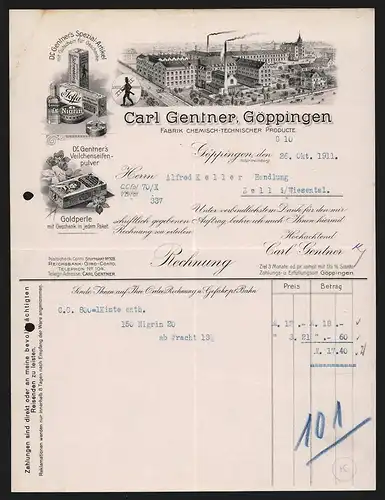 Dr. Gentner's Spezial-Artikel
Nigrin
Dr. Gentner's
Veilchenseifen-
pulver
Goldperle
mit Geschenk in jedem Paket.
Carl Gentner, Göppingen
Fabrik chemisch-technischer Producte
G 10
Göppingen, den 26. Okt. 1911.
Herrn Alfred Keller Handlung
Zell i/Wiesental.
70/X
337
Unter verbindlichstem Dank für den mir
schriftlich gegebenen Auftrag beehre ich mich Ihnen hiermit
Rechnung zu erteilen
Hochachtend
Carl Gentner
Reichsbank-Giro-Conto.
Telephon Nº 104.
Telegr. Adresse: Carl Gentner
Ziel 3 Monate od. pr. compt. mit 1½ % Sconto.
Zahlungs- u. Erfüllungsort Göppingen.
Rechnung
Sende Ihnen auf Ihre Order Rechnung u. Gefahr pr. Bahn
Preis
Betrag
150 Nigrin 20
M. 12.- M. 18.-
ab Fracht
" 60
M. 17.40
101
Zahlungen sind direkt oder an meine bevollmächtigten
Reisenden zu leisten.
Reklamationen werden nur innerhalb 8 Tagen nach Empfang der Ware angenommen.
K